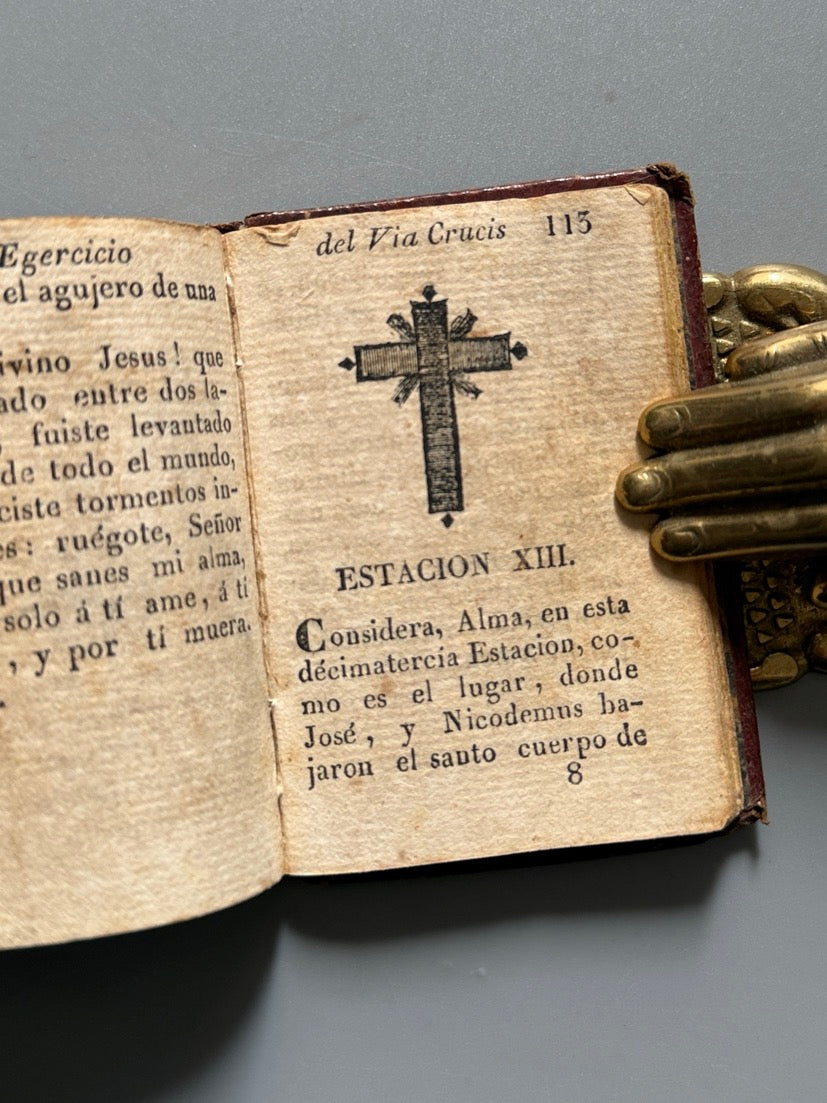 Egercicio
el agujero de una
ivino Jesus! que
ado entre dos la-
, fuiste levantado
de todo el mundo,
ciste tormentos in-
es: ruégote, Señor
que sanes mi alma,
solo á tí ame, á tí
, y por tí muera.
del Via Crucis 113
ESTACION XIII.
Considera, Alma, en esta
décimatercia Estacion, co-
mo es el lugar, donde
José, y Nicodemus ba-
jaron el santo cuerpo de
8